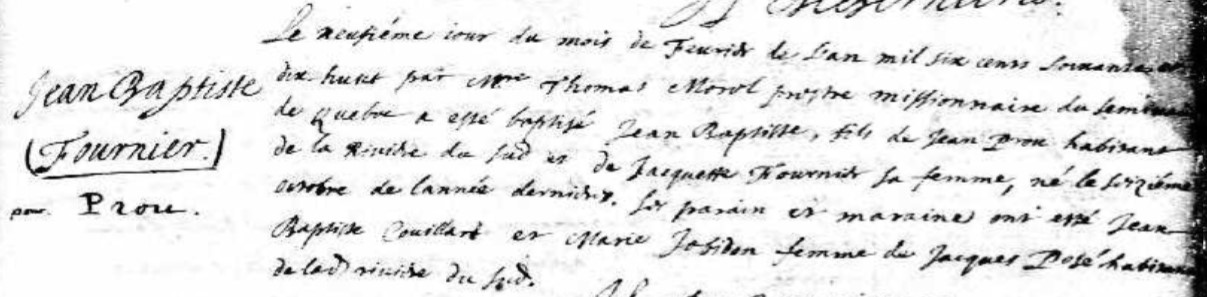 Jean Baptiste
(Fournier.)
pour Prou.
Le neufiéme iour du mois de Feurier de Lan mil six cens soixante et
dix huict par Mre Thomas Morel prestre missionnaire du seminaire
de quebec a esté baptisé Jean Baptiste, fils de Jean Prou habitant
de la Riuiere du sud et de Jacquette Fournier sa femme, né le seizieme
octobre de lannée derniere. Ses parain et maraine ont esté Jean
Baptiste Couillart et Marie Jobidon femme de Jacques Posé habitant
de lad riuiere du sud.